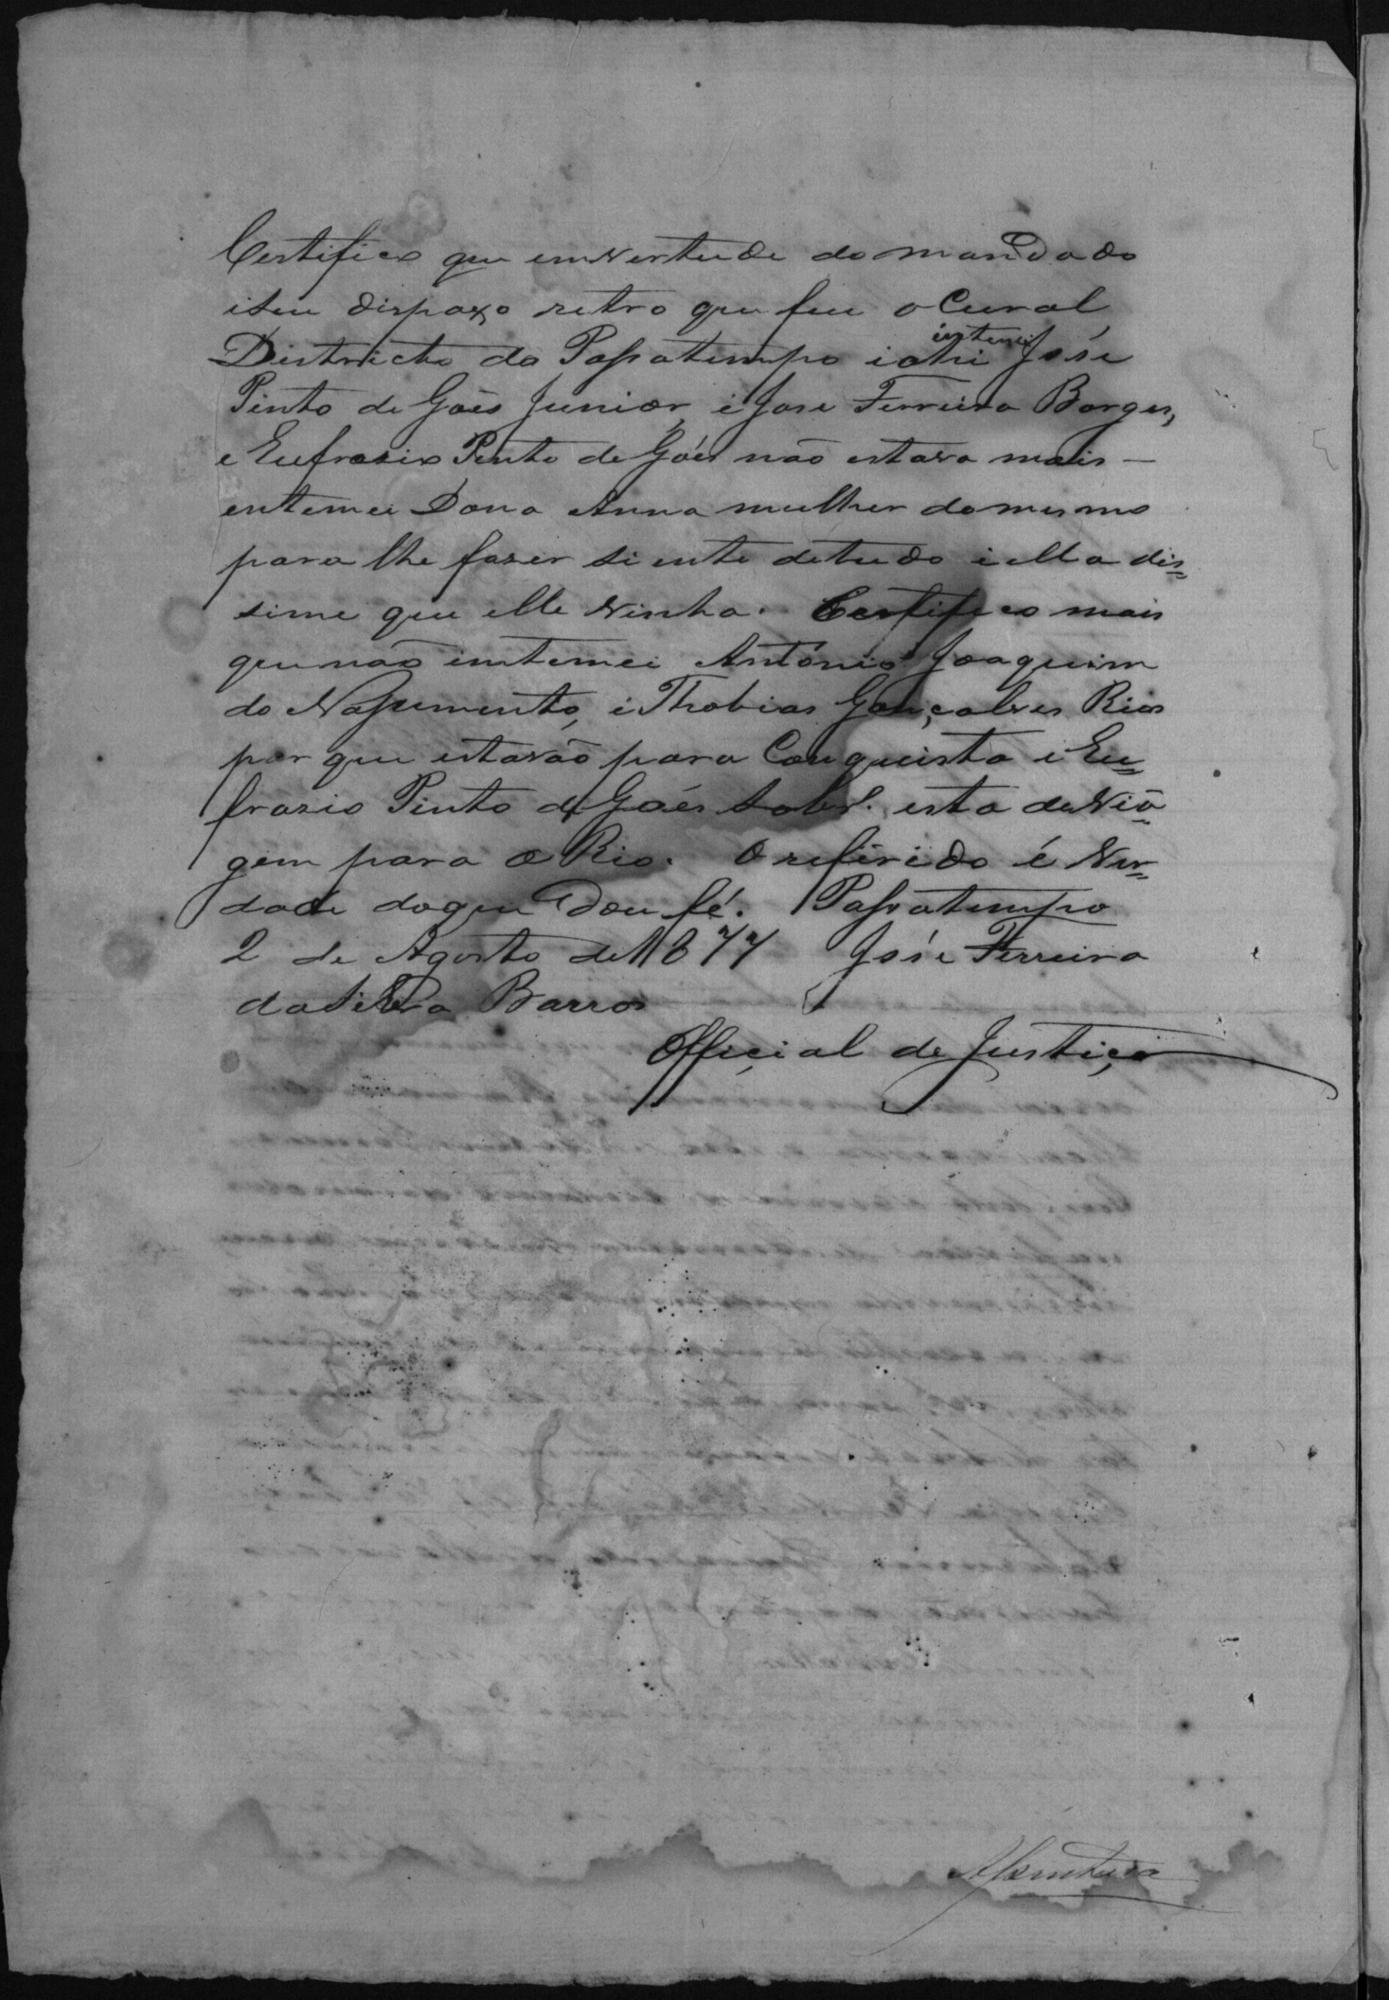 Certifico que em vertude do mandado
i seu dispaxo retro que fui o Cural
Districto do Passatempo i ahi intemei José
Pinto de Goes Junior, i Jose Ferreira Borges,
e Eufrosio Pinto de Góes não estava mais
entemei Dona Anna mulher do mesmo
para lhe faser siente de tudo i ella dis=
sime que elle vinha. Certifico mais
que não imtemei Antonio Joaquim
do Nassimento, i Thobias Gonçalves Rios
por que estavão para Conquista i Eu=
frazio Pinto de Goes Sobr.º esta de viá=
gem para o Rio. O referido é ver=
dade do que Dou fé. Passatempo
2 de Agosto de 1877 José Ferreira
da Silva Barros
Offiçial de Justiça